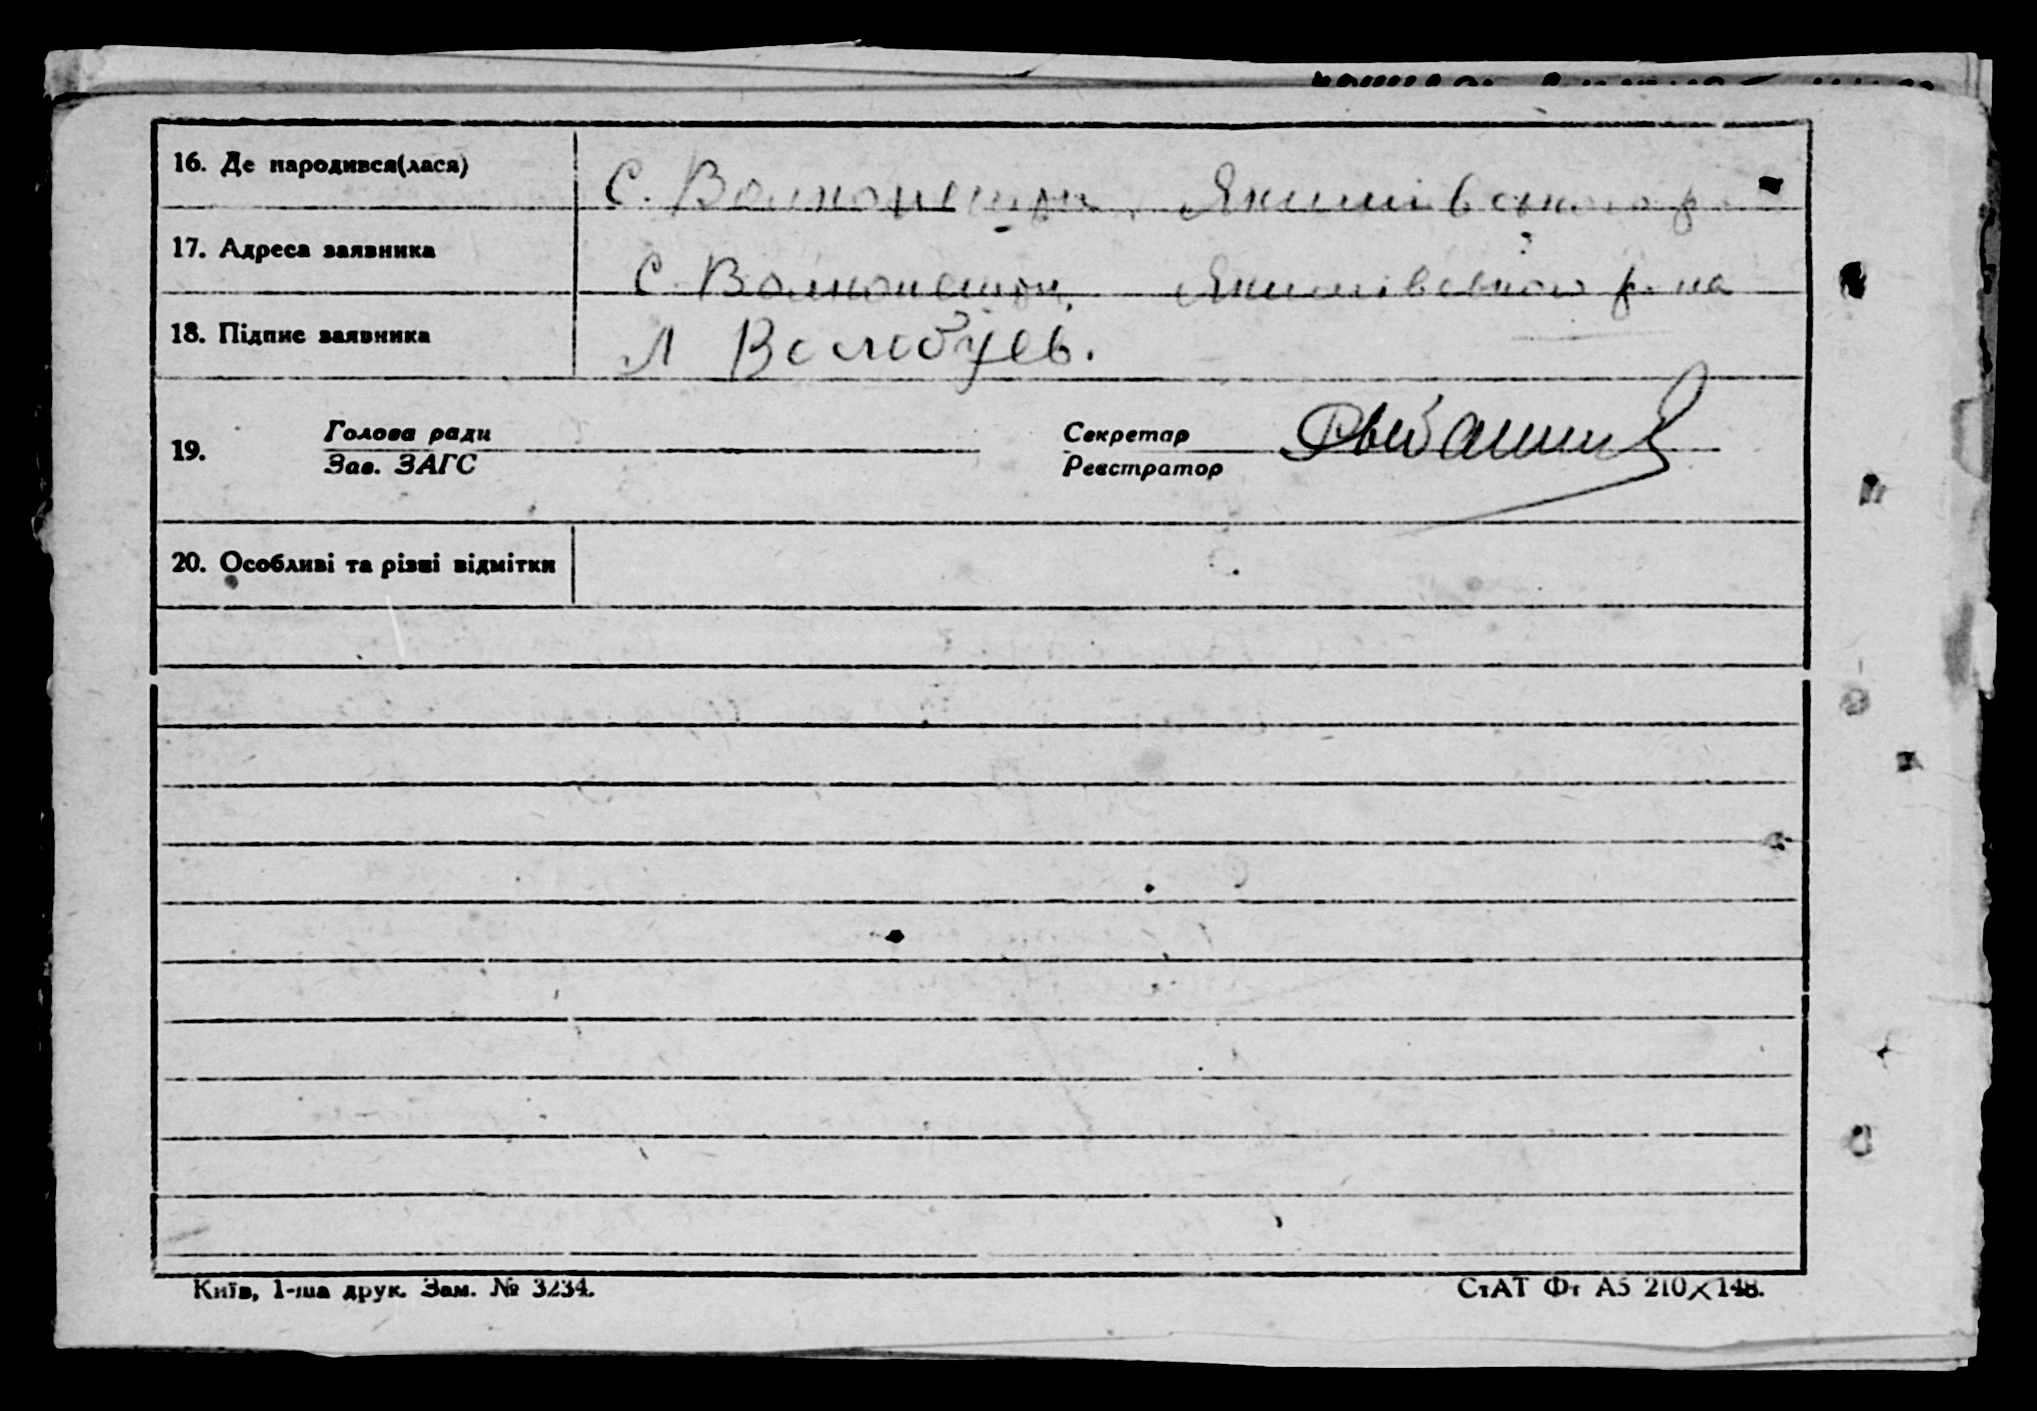 16. Де народився(лася) С. Волконешти, Якимівського р
17. Адреса заявника С. Волконешти, Якимівського р-на
18. Підпис заявника Л
19. Голова ради Секретар
Зав. ЗАГС Реєстратор
20. Особливі та різні відмітки
Київ, 1-ша друк. Зам. № 3234. СтАТ Фт А5 210×148.